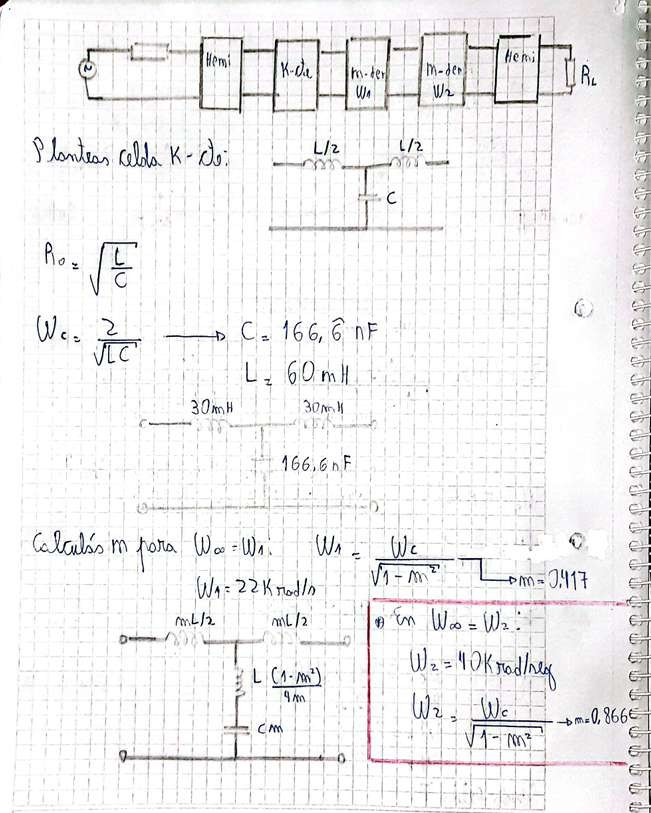 Hemi K-cte m-der W1 m-der W2 Hemi RL
Planteas celda K-cte:
L/2 L/2
C
Ro = √(L/C)
Wc = 2/√(LC) → C = 166,6̂ nF
L = 60 mH
30mH 30mH
166,6 nF
Calculás m para W∞ = W1: W1 = Wc/√(1-m²) → m = 0,417
W1 = 22 Krad/s
mL/2 mL/2
L (1-m²)/4m
Cm
En W∞ = W2:
W2 = 40 Krad/seg
W2 = Wc/√(1-m²) → m = 0,866